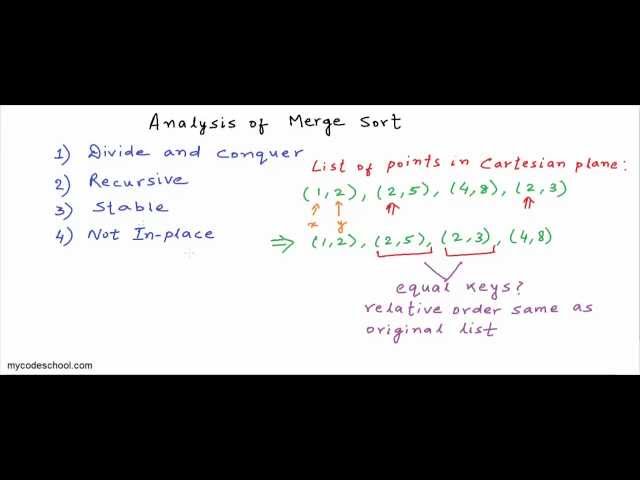 Analysis of Merge Sort
1) Divide and conquer
2) Recursive
3) Stable
4) Not In-place
List of points in Cartesian plane:
(1,2), (2,5), (4,8), (2,3)
x y
⇒ (1,2), (2,5), (2,3), (4,8)
equal keys?
relative order same as
original list
mycodeschool.com